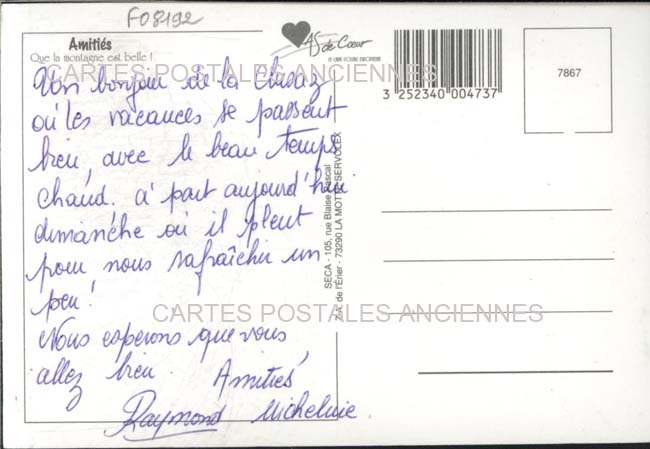 F08192
Amitiés
Que la montagne est belle !
AS de Cœur
LA CARTE POSTALE EUROPÉENNE
3 252340 004737
7867
CARTES POSTALES ANCIENNES
Un bonjour de la Clusaz
où les vacances se passent
bien, avec le beau temps
chaud. à part aujourd'hui
dimanche où il pleut
pour nous rafraîchir un
peu!
Nous esperons que vous
allez bien. Amitiés
Raymond Micheline
SECA - 105, rue Blaise Pascal
Z.A. de l'Erier - 73290 LA MOTTE SERVOLEX
CARTES POSTALES ANCIENNES